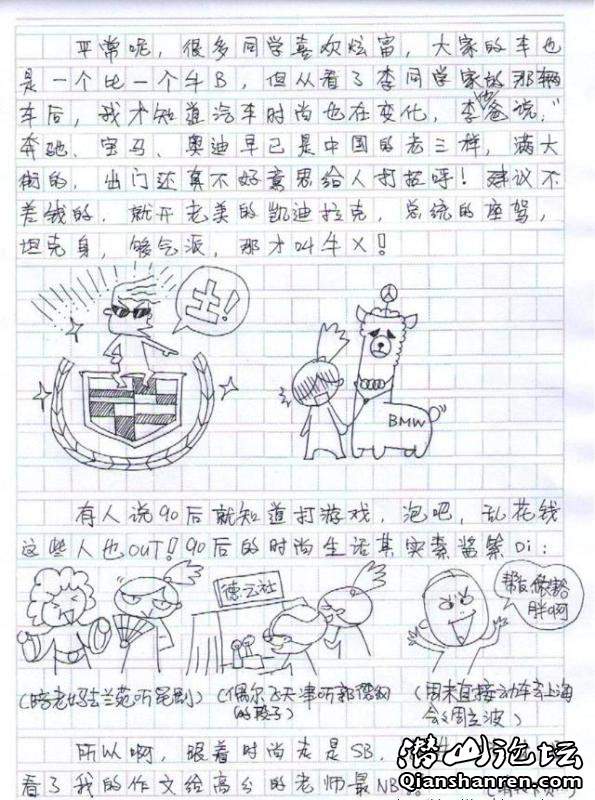 平常呢，很多同学喜欢炫富，大家的车也
是一个比一个牛B，但从看了李同学家的那辆
车后，我才知道汽车时尚也在变化，李他爸说，"
奔驰、宝马、奥迪早已是中国的老三样，满大
街的，出门还真不好意思给人打招呼！建议不
差钱的，就开老美的凯迪拉克，总统的座驾，
坦克身，够气派，那才叫牛X！
土！
BMW
有人说90后就知道打游戏，泡吧，乱花钱
这些人也OUT！90后的时尚生活其实素酱紫Di：
德云社
帮友 胖啊
(陪老妈去兰苑听昆剧)
(偶尔飞天津听郭德纲
的段子)
(周末直接动车去上海
会会周立波)
所以啊，跟着时尚走是SB，
看了我的作文给高分的老师最NB。
潜山论坛
Qianshanren.com